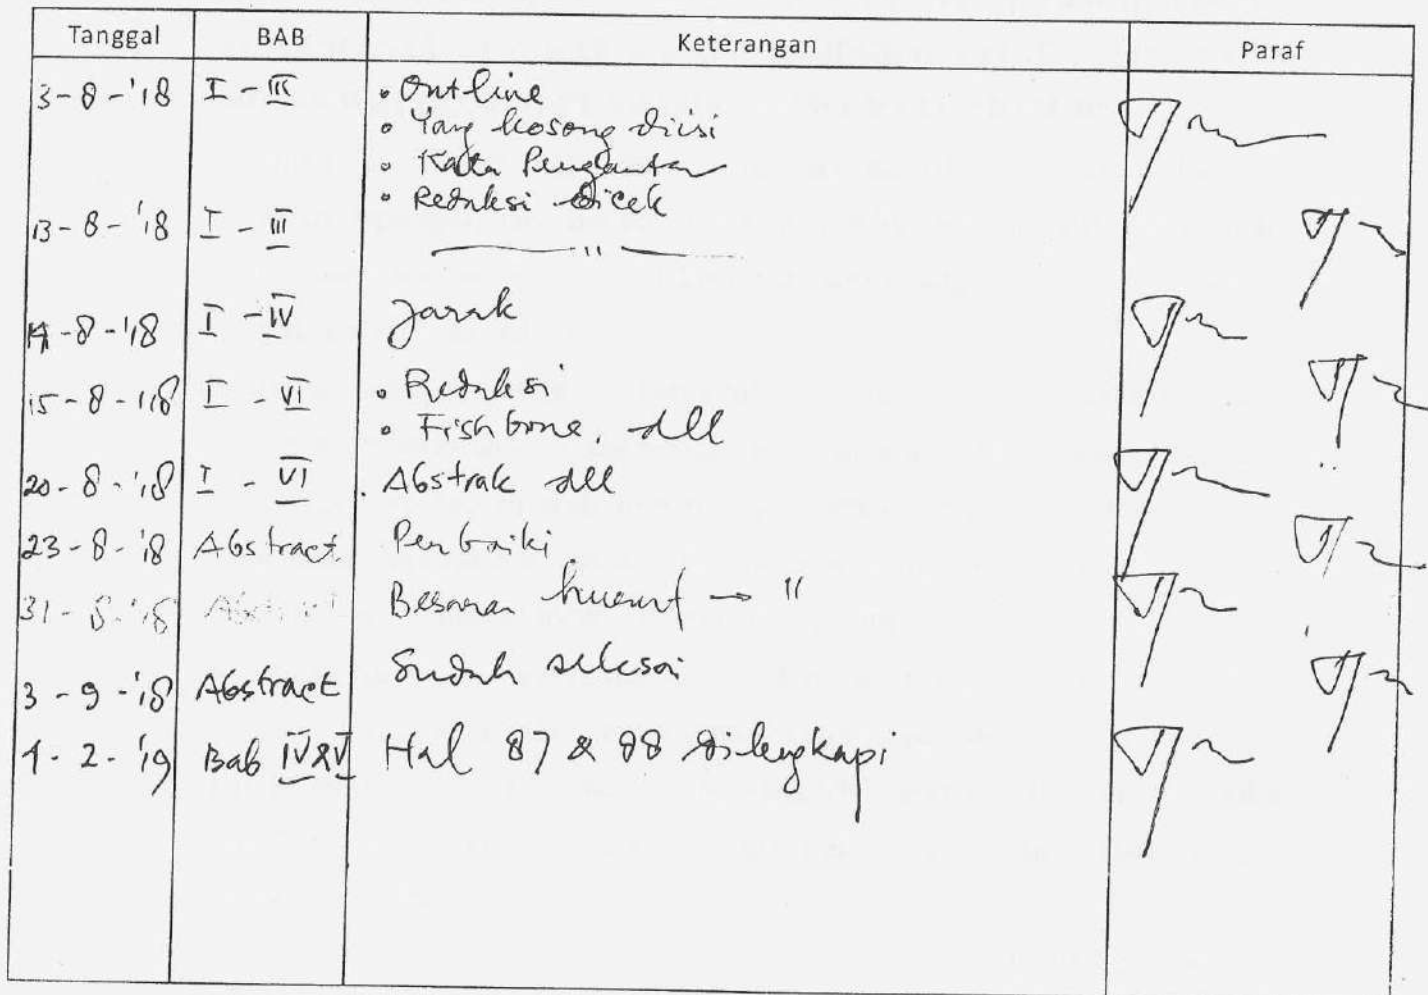 Tanggal BAB Keterangan Paraf
3-8-'18 I - III • Outline
• Yang kosong diisi
• Kata Pengantar
• Redaksi dicek
13-8-'18 I - III "
14-8-'18 I - IV Jarak
15-8-'18 I - VI • Redaksi
• Fishbone, dll
20-8-'18 I - VI . Abstrak dll
23-8-'18 Abstract Perbaiki
31-8-'18 Abstract Besaran huruf → "
3-9-'18 Abstract Sudah selesai
1-2-'19 Bab IV & V Hal 87 & 88 dilengkapi